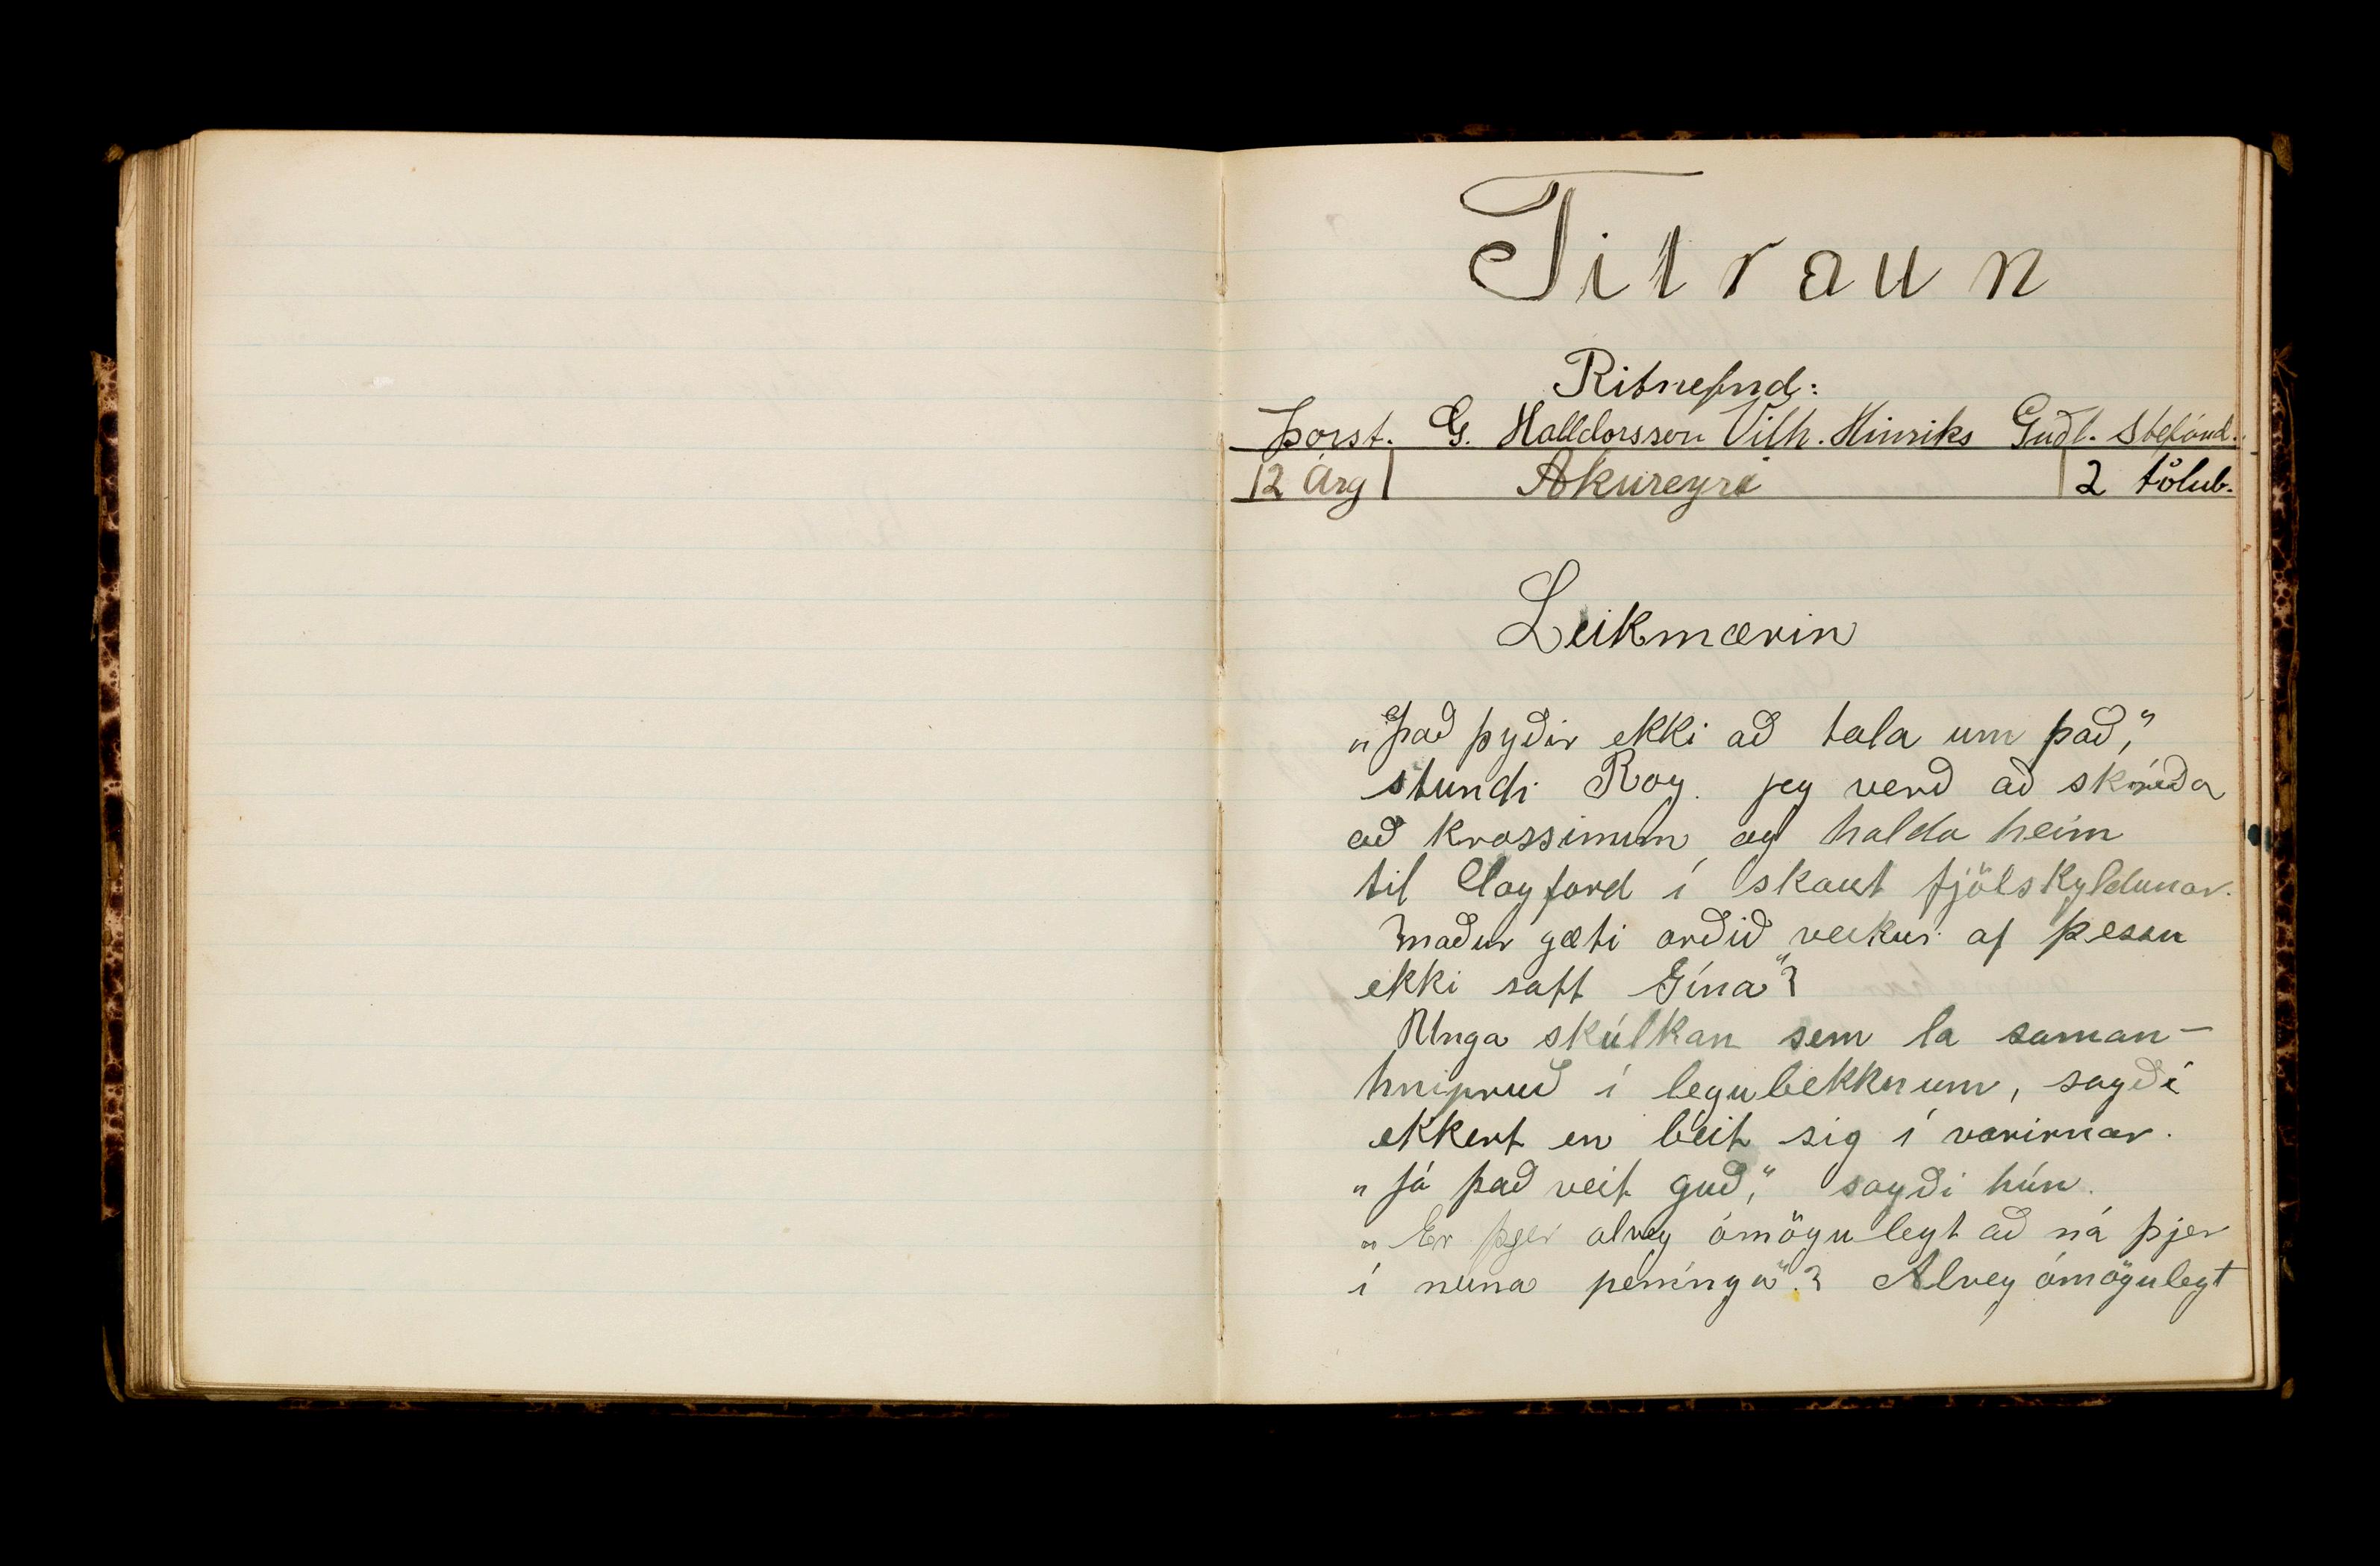 Titraun
Ritnefnd:
Þorst. G. Halldorsson Vilh. Hinriks Guðl. Stefánd.
12 Árg Akureyri 2 tölub.
Leikmærin
„Það þyðir ekki að tala um það,“
stundi Roy. jeg verð að skríða
að krossinum og halda heim
til Clayford í skaut fjölskyldunar.
Maður gæti orðið veikur af þessu
ekki satt Gína“?
Unga skúlkan sem la saman-
hnipruð í legubekknum, sagði
ekkert en beit sig í varirnar.
„Já það veit guð,“ sagði hún.
„Er þjer alveg ómögulegt að ná þjer
í neina penínga“? Alveg ómögulegt